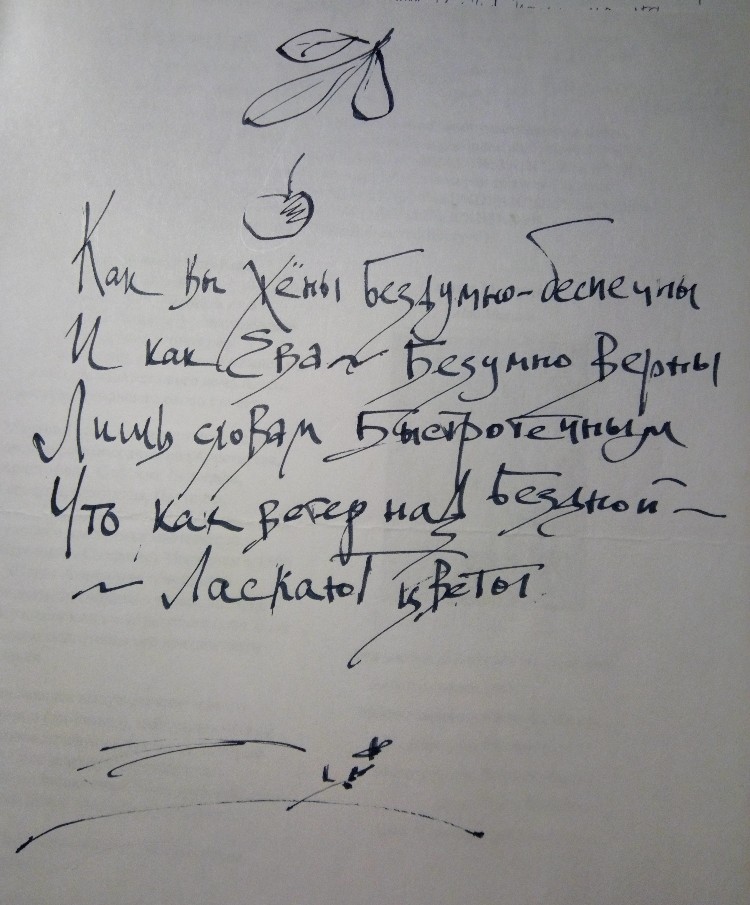 Как вы Жёны Бездумно-беспечны
И как Ева ~ Безумно Верны
Лишь словам Быстротечным
Что как ветер над Бездной ~
~ Ласкают цветы